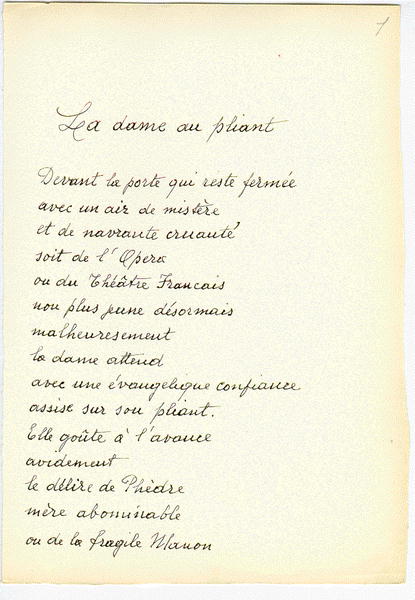 1
La dame au pliant
Devant la porte qui reste fermée
avec un air de mistère
et de navrante cruauté
soit de l'Opera
ou du Théâtre Francais
non plus jeune désormais
malheuresement
la dame attend
avec une évangelique confiance
assise sur son pliant.
Elle goûte à l'avance
avidement
le délire de Phèdre
mère abominable
ou de la fragile Manon